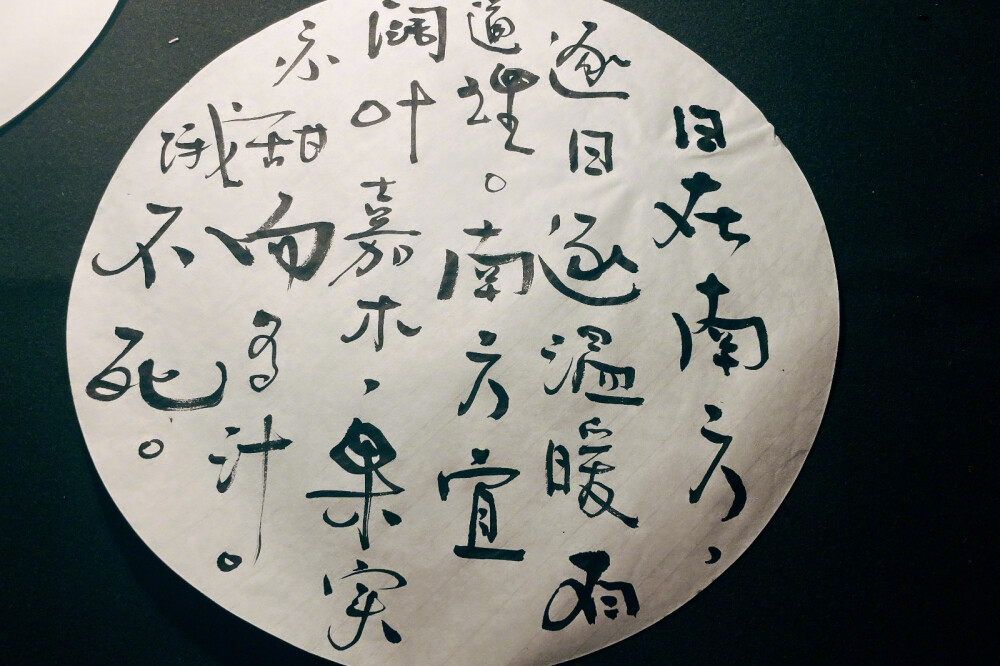 因在南方，
逐日逐温暖有
道理。南方宜
阔叶嘉木，果实
亦甜而多汁。
饿不死。